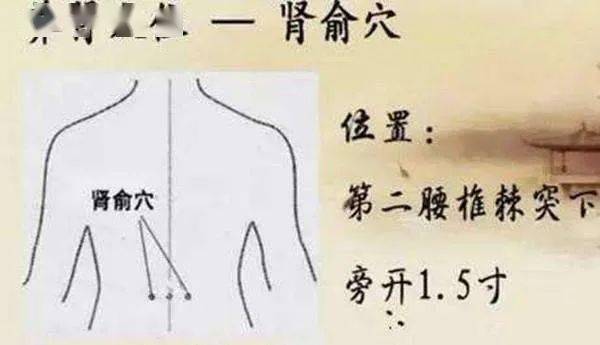 — 肾俞穴
位置：
肾俞穴
第二腰椎棘突下
旁开1.5寸